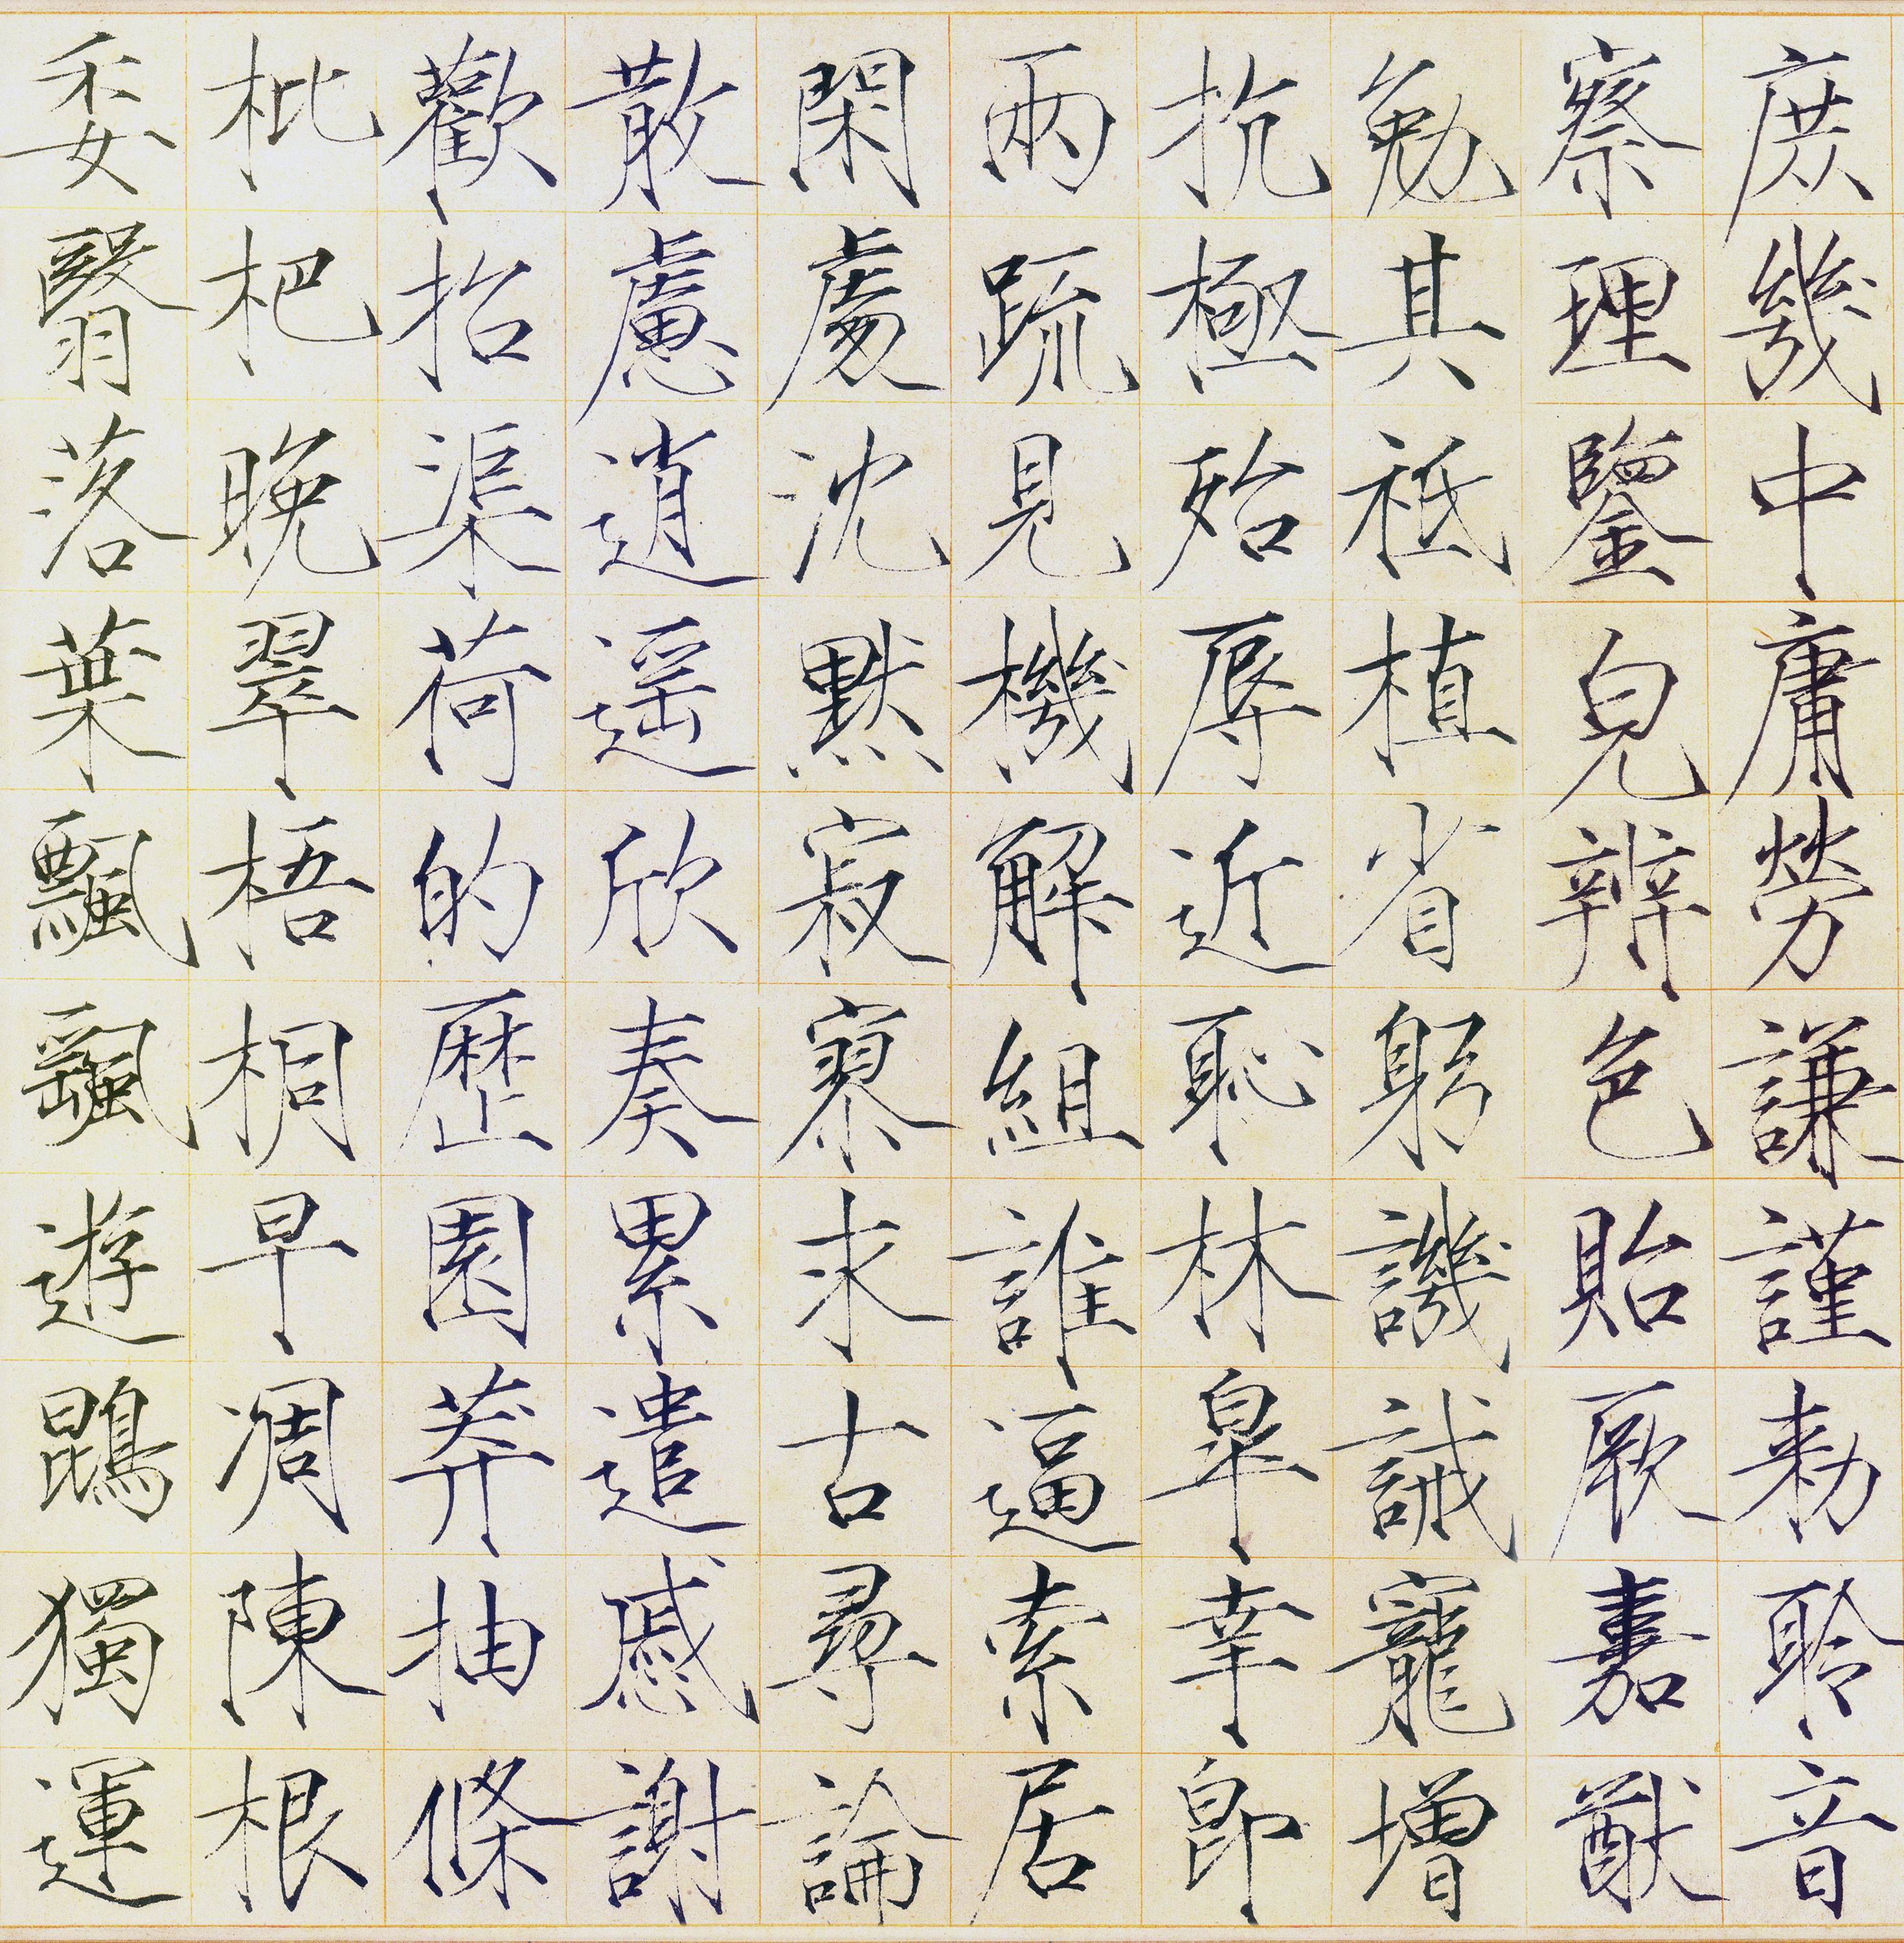 庶幾中庸勞謙謹勅聆音
察理鑒皃辨色貽厥嘉猷
勉其祗植省躬譏誡寵增
抗極殆辱近恥林皐幸即
兩疏見機解組誰逼索居
閑處沈默寂寥求古尋論
散慮逍遥欣奏累遣慼謝
歡招渠荷的歷園莽抽條
枇杷晚翠梧桐早凋陳根
委翳落葉飄颻遊鵾獨運